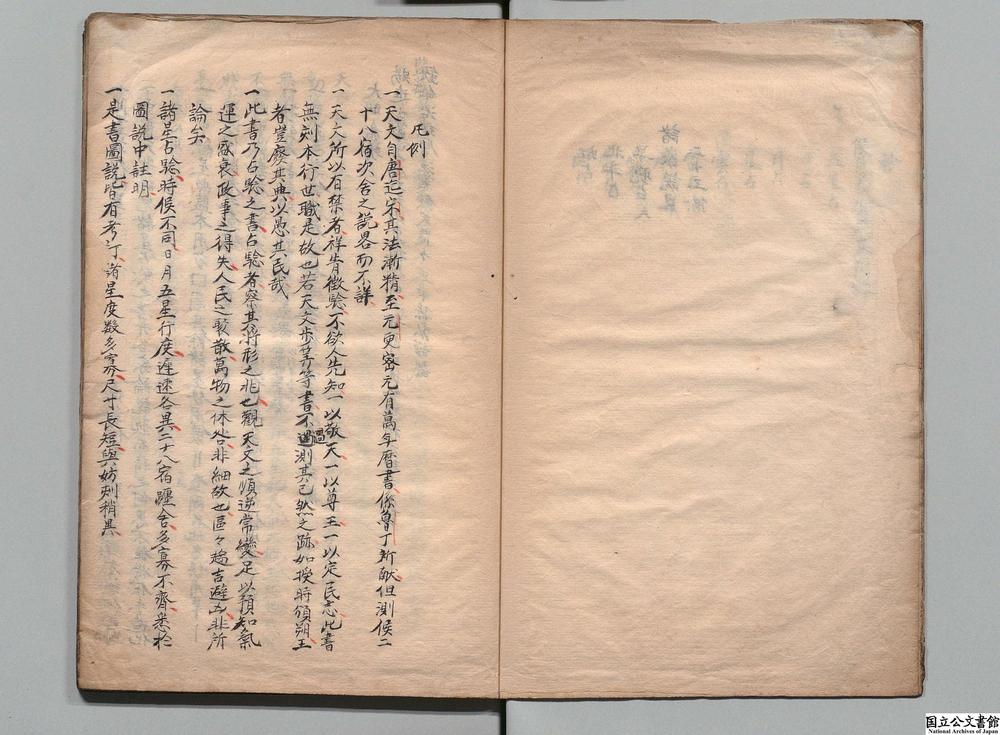 凡例
一天文自唐迄宋其法漸精至元更密元有萬年曆書係魯丁所献但測候二
十八宿次舍之說畧而不詳
一天文所以有禁者祥眚徴驗不欲人先知一以敬天一以尊王一以定民志此書
無刻本行世職是故也若天文歩筭等書不過測其已然之跡如授時頒朔王
者豈廢其典以愚其民哉
一此書乃占驗之書占驗者察其將形之兆也觀天文之順逆常變足以預知氣
運之盛衰政事之得失人民之聚散萬物之休咎非細故也區々趨吉避凶非所
論矣
一諸星占驗時候不同日月五星行度遲速各異二十八宿躔舍多寡不齊悉於
圖說中註明
一是書圖說皆有考訂諸星度数多寡尺寸長短與妨刻稍異
国立公文書館
National Archives of Japan